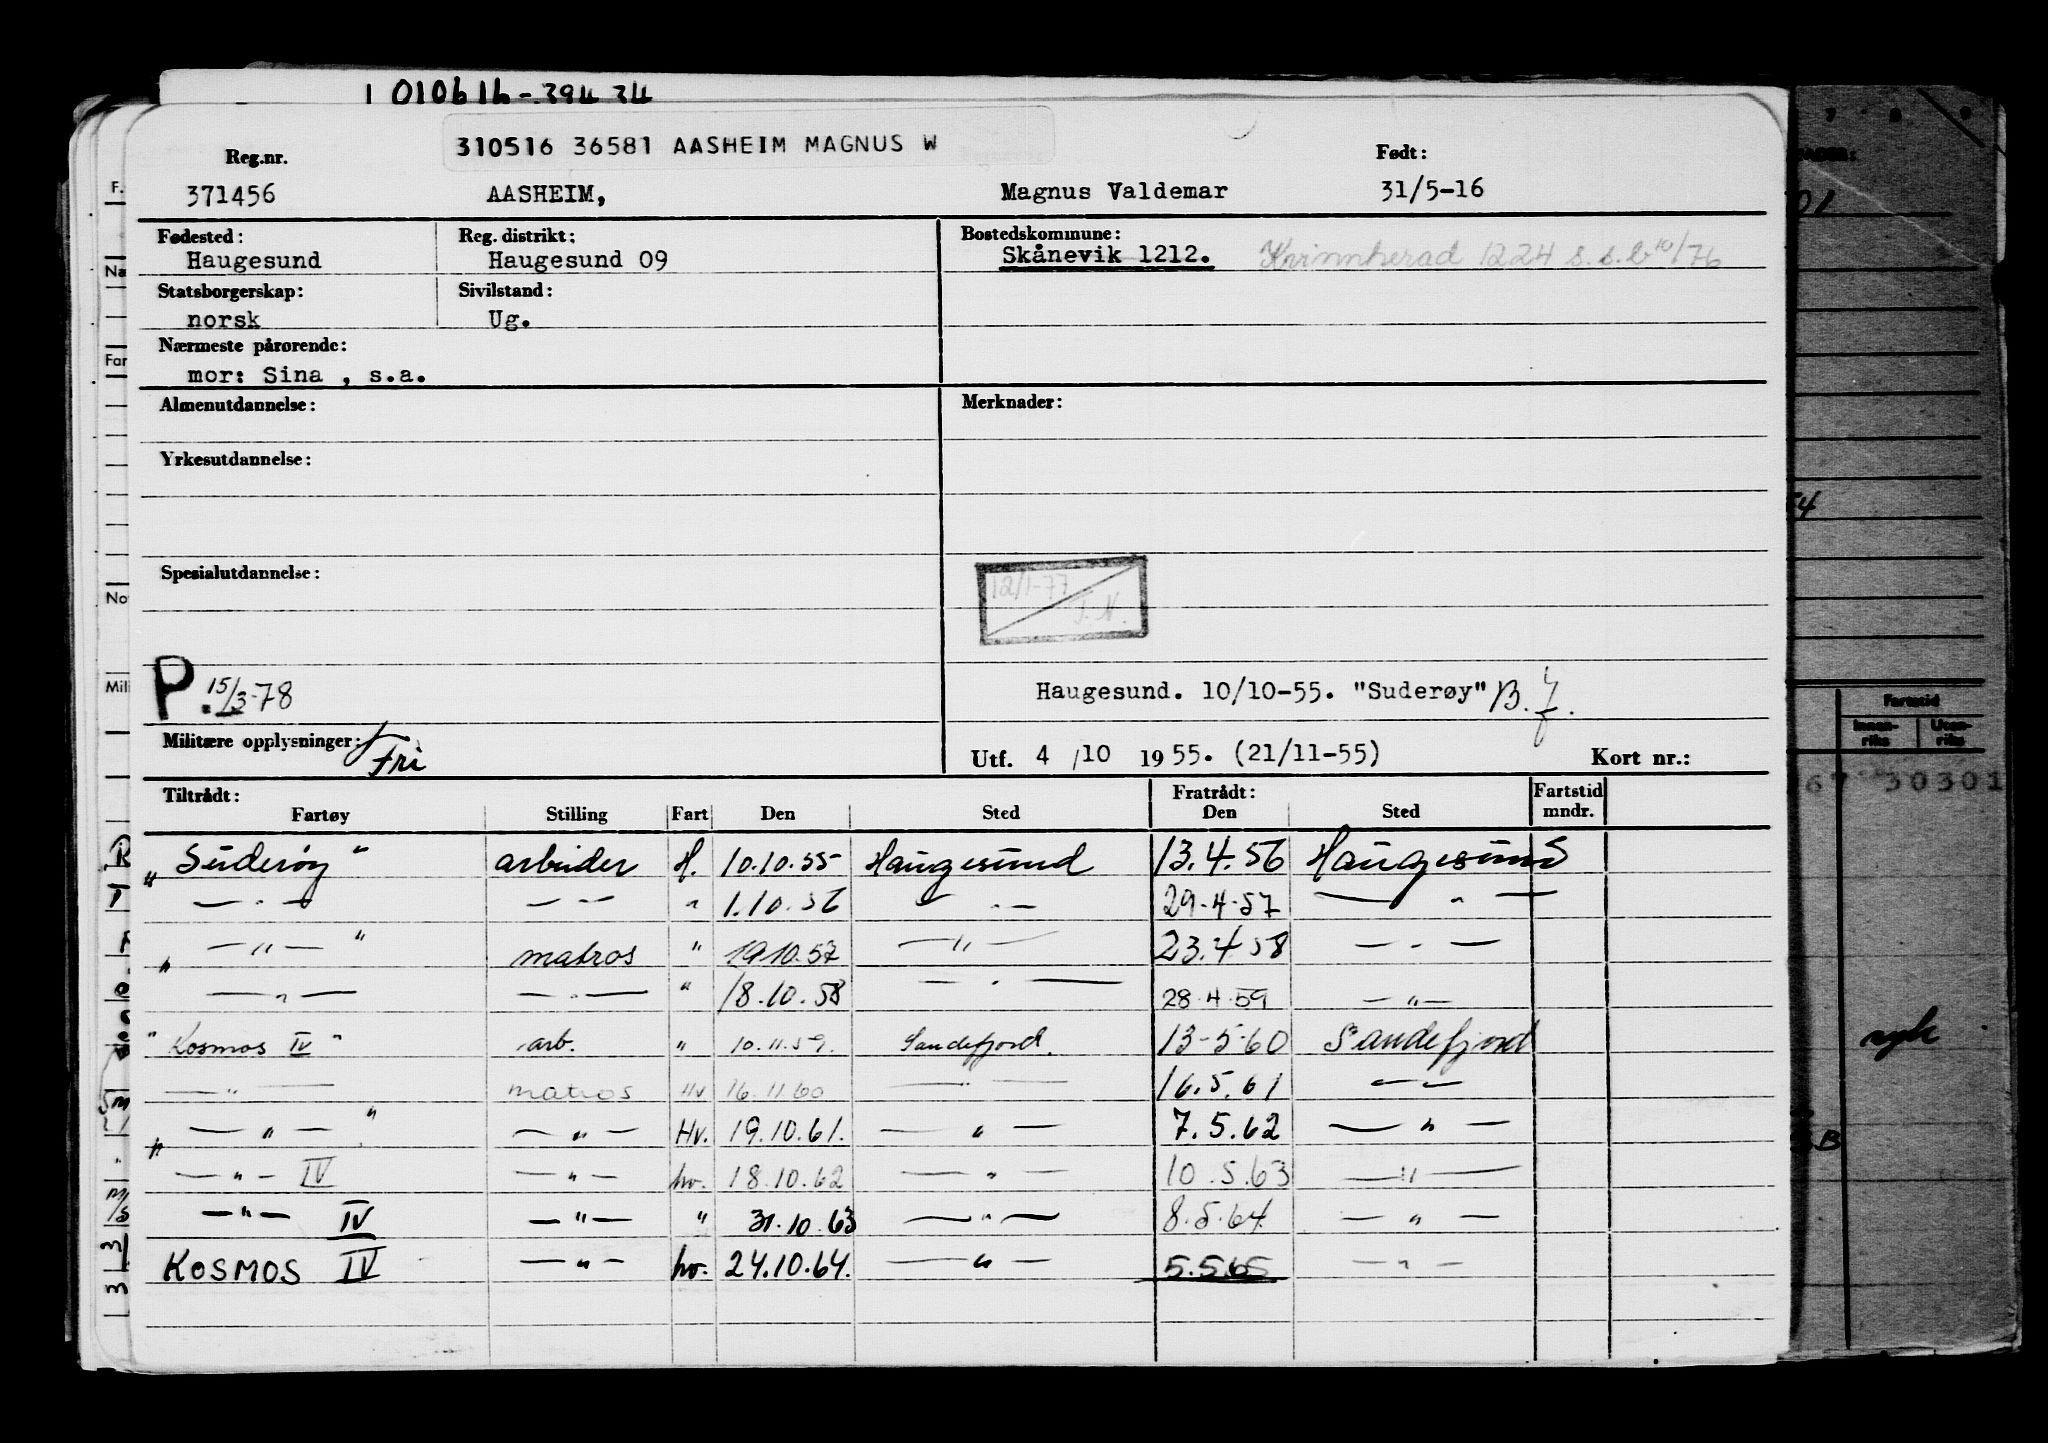 1 010616-394 34
310516 36581 AASHEIM MAGNUS W
Reg.nr. Født:
371456 AASHEIM, Magnus Valdemar 31/5-16
Fødested: Reg. distrikt: Bostedskommune:
Haugesund Haugesund 09 Skånevik 1212. Kvinnherad 1224 s.s.b 10/76
Statsborgerskap: Sivilstand:
norsk Ug.
Nærmeste pårørende:
mor: Sina , s.a.
Almenutdannelse: Merknader:
Yrkesutdannelse:
Spesialutdannelse:
12/1-77
T.N.
P. 15/3-78
Haugesund. 10/10-55. "Suderøy" B.
Militære opplysninger: Fri
Utf. 4/10 1955. (21/11-55) Kort nr.:
Tiltrådt: Fratrådt: Fartstid
Fartøy Stilling Fart Den Sted Den Sted mndr.
"Suderøy" arbeider H. 10.10.55 Haugesund 13.4.56 Haugesund
— " — — " — " 1.10.56 — " — 29-4-57 — " —
" — " — " matros " 19.10.57 — " — 23.4 58 — " —
— " — — " — " 18.10.58 — " — 28.4.59 — " —
"Kosmos IV" arb. " 10.11.59. Sandefjord. 13-5-60 Sandefjord
— " — matros Hv 16.11.60 — " — 16.5.61 — " —
" — " — " — " — Hv. 19.10.61. — " — 7.5.62 — " —
— " — IV — " — hv. 18.10.62 — " — 10.5.63 — " —
— " — IV — " — " 31.10.63 — " — 8.5.64 — " —
KOSMOS IV — " — hv. 24.10.64. — " — 5.5.65 — " —
Fartstid
Innen-
riks
Uten-
riks
30301